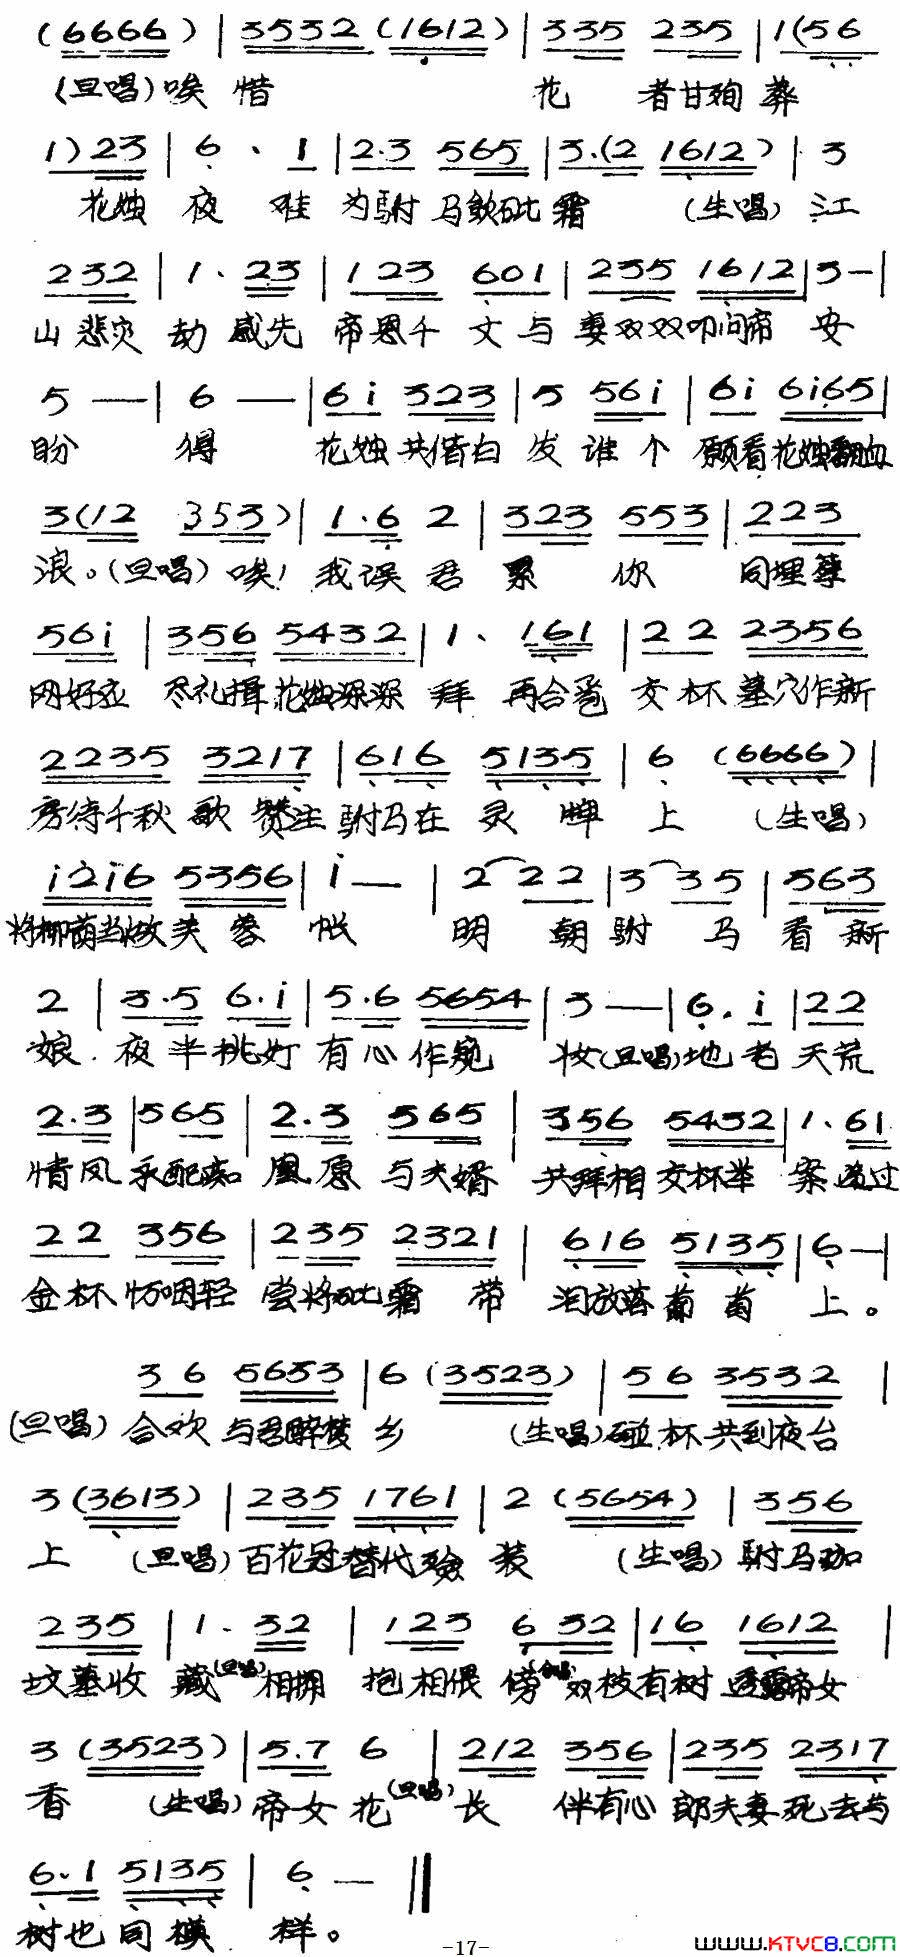 (6666) | 3532 (1612) | 335 235 | 1(56
(旦唱)唉 惜 花 者甘殉葬
1) 23 | 6 . 1 | 2.3 565 | 3.(2 1612) | 3
花烛 夜 难 为驸马饮砒霜 (生唱) 江
232 | 1. 23 | 123 601 | 235 1612 | 3 — |
山悲灾 劫 感先 帝恩千 丈与妻双双叩问帝 安
5 — | 6 — | 6i 323 | 5 56i | 6i 6i65 |
盼 得 花烛共偕白发谁个 愿看花烛翻血
3(12 353) | 1.6 2 | 323 553 | 223
浪。(旦唱) 唉! 我误君累 你 同埋孽
56i | 356 5432 | 1. 161 | 22 2356
网好应 尽礼揖花烛深深 拜 再合卺 交杯墓穴作新
2235 3217 | 616 5135 | 6 (6666) |
房待千秋歌赞注驸马在灵牌上 (生唱)
i2i6 5356 | i — | 2 22 | 3 35 | 563
将柳荫当做芙蓉 帐 明 朝驸 马看新
2 | 3.5 6.i | 5.6 5654 | 3 — | 6. i | 22
娘.夜半挑灯有心作窥 妆(旦唱)地老天荒
2.3 | 565 | 2.3 565 | 356 5432 | 1. 61
情凤永配痴凰愿与夫婿 共拜相交杯举 案递过
22 356 | 235 2321 | 616 5135 | 6 — |
金杯怀咽轻 尝将砒霜带 泪放落葡萄 上。
36 5653 | 6 (3523) | 56 3532 |
(旦唱) 合欢与君醉梦乡 (生唱)碰杯共到夜台
3 (3613) | 235 1761 | 2 (5654) | 356
上 (旦唱)百花冠替代殓装 (生唱)驸马珈
235 | 1. 32 | 123 6 32 | 16 1612 |
坟墓收藏(旦唱)相拥 抱相偎傍(合唱)双枝有树透露帝女
3 (3523) | 5.7 6 | 212 356 | 235 2317
香 (生唱)帝女花(旦唱)长 伴有心 郎夫妻死去与
6.1 5135 | 6 — ||
树也同模 样。
-17-
WWW.KTVC8.COM